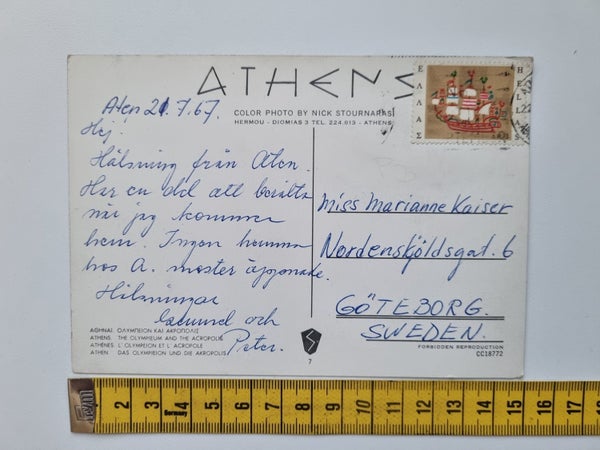 ATHENS
COLOR PHOTO BY NICK STOURNARAS
HERMOU - DIOMIAS 3 TEL. 224.013 - ATHENS
ΕΛΛΑΣ
HELLAS
Aten 21.7.67.
Hej.
Hälsning från Aten.
Har en del att berätta
när jag kommer
hem. Ingen hemma
hos A. moster öppnade.
Hälsningar
och
Peter.
Miss Marianne Kaiser
Nordenskjöldsgat. 6
GÖTEBORG.
SWEDEN.
ΑΘΗΝΑΙ ΟΛΥΜΠΕΙΟΝ ΚΑΙ ΑΚΡΟΠΟΛΙΣ
ATHENS: THE OLYMPIEUM AND THE ACROPOLIS
ATHENES: L'OLYMPEION ET L'ACROPOLE
ATHEN DAS OLYMPIEION UND DIE AKROPOLIS
7
FORBIDDEN REPRODUCTION
CC18772
1 2 3 4 5 6 7 8 9 10 11 12 13 14 15 16 17 18
Germany